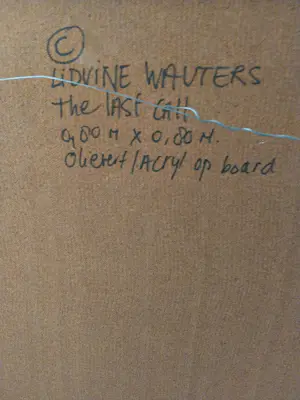 ©
LIDVINE WAUTERS
The LAST CALL
0,80 M X 0,80 M.
Olieverf/Acryl op board